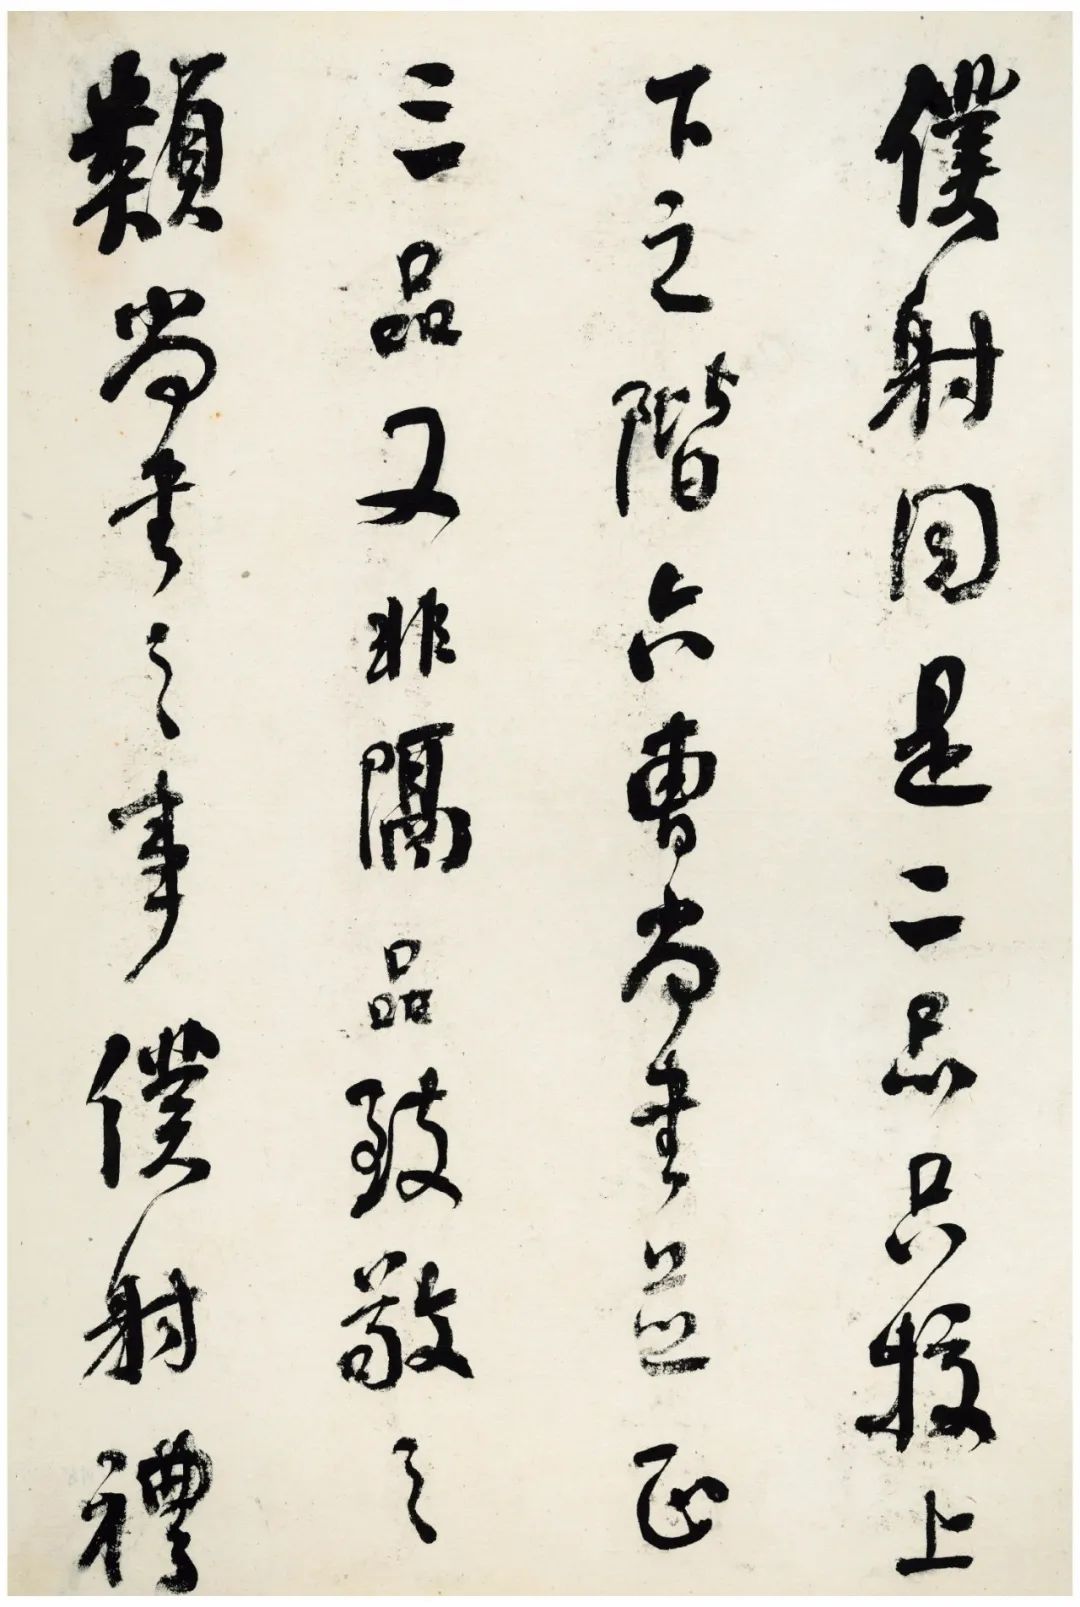 僕射同是二品只校上
下之階六曹尚書並正
三品又非隔品致敬之
類尚書之事僕射禮